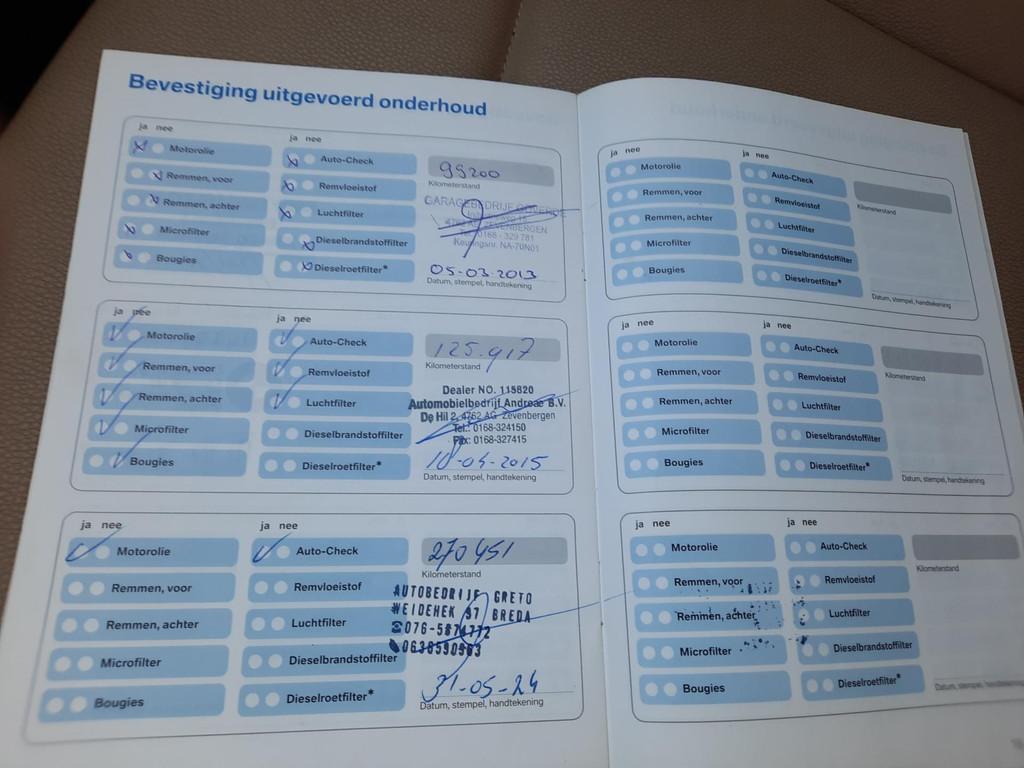 Bevestiging uitgevoerd onderhoud
ja nee
ja nee
Motorolie
Auto-Check
95200
Remmen, voor
Remvloeistof
Kilometerstand
Remmen, achter
Luchtfilter
GARAGEBEDRIJF
4762 ZEVENBERGEN
Tel. 0168 - 329 781
Microfilter
Dieselbrandstoffilter
Keuringanr. NA-70N01
Bougies
Dieselroetfilter*
05-03-2013
Datum, stempel, handtekening
ja nee
ja nee
Motorolie
Auto-Check
125.917
Remmen, voor
Remvloeistof
Kilometerstand
Remmen, achter
Luchtfilter
Dealer NO. 115820
Automobielbedrijf Andreae B.V.
De Hil 2, 4762 AG Zevenbergen
Microfilter
Dieselbrandstoffilter
Tel.: 0168-324150
Fax: 0168-327415
Bougies
Dieselroetfilter*
10-04-2015
Datum, stempel, handtekening
ja nee
ja nee
Motorolie
Auto-Check
270451
Kilometerstand
Remmen, voor
Remvloeistof
AUTOBEDRIJF GRETO
WEIDEHEK 37 BREDA
Remmen, achter
Luchtfilter
☎076-5874772
0638590963
Microfilter
Dieselbrandstoffilter
Bougies
Dieselroetfilter*
31-05-24
Datum, stempel, handtekening
ja nee
ja nee
Motorolie
Auto-Check
Remmen, voor
Remvloeistof
Kilometerstand
Remmen, achter
Luchtfilter
Microfilter
Dieselbrandstoffilter
Bougies
Dieselroetfilter*
Datum, stempel, handtekening
ja nee
ja nee
Motorolie
Auto-Check
Remmen, voor
Remvloeistof
Kilometerstand
Remmen, achter
Luchtfilter
Microfilter
Dieselbrandstoffilter
Bougies
Dieselroetfilter*
Datum, stempel, handtekening
ja nee
ja nee
Motorolie
Auto-Check
Kilometerstand
Remmen, voor
Remvloeistof
Remmen, achter
Luchtfilter
Microfilter
Dieselbrandstoffilter
Bougies
Dieselroetfilter*
Datum, stempel, handtekening